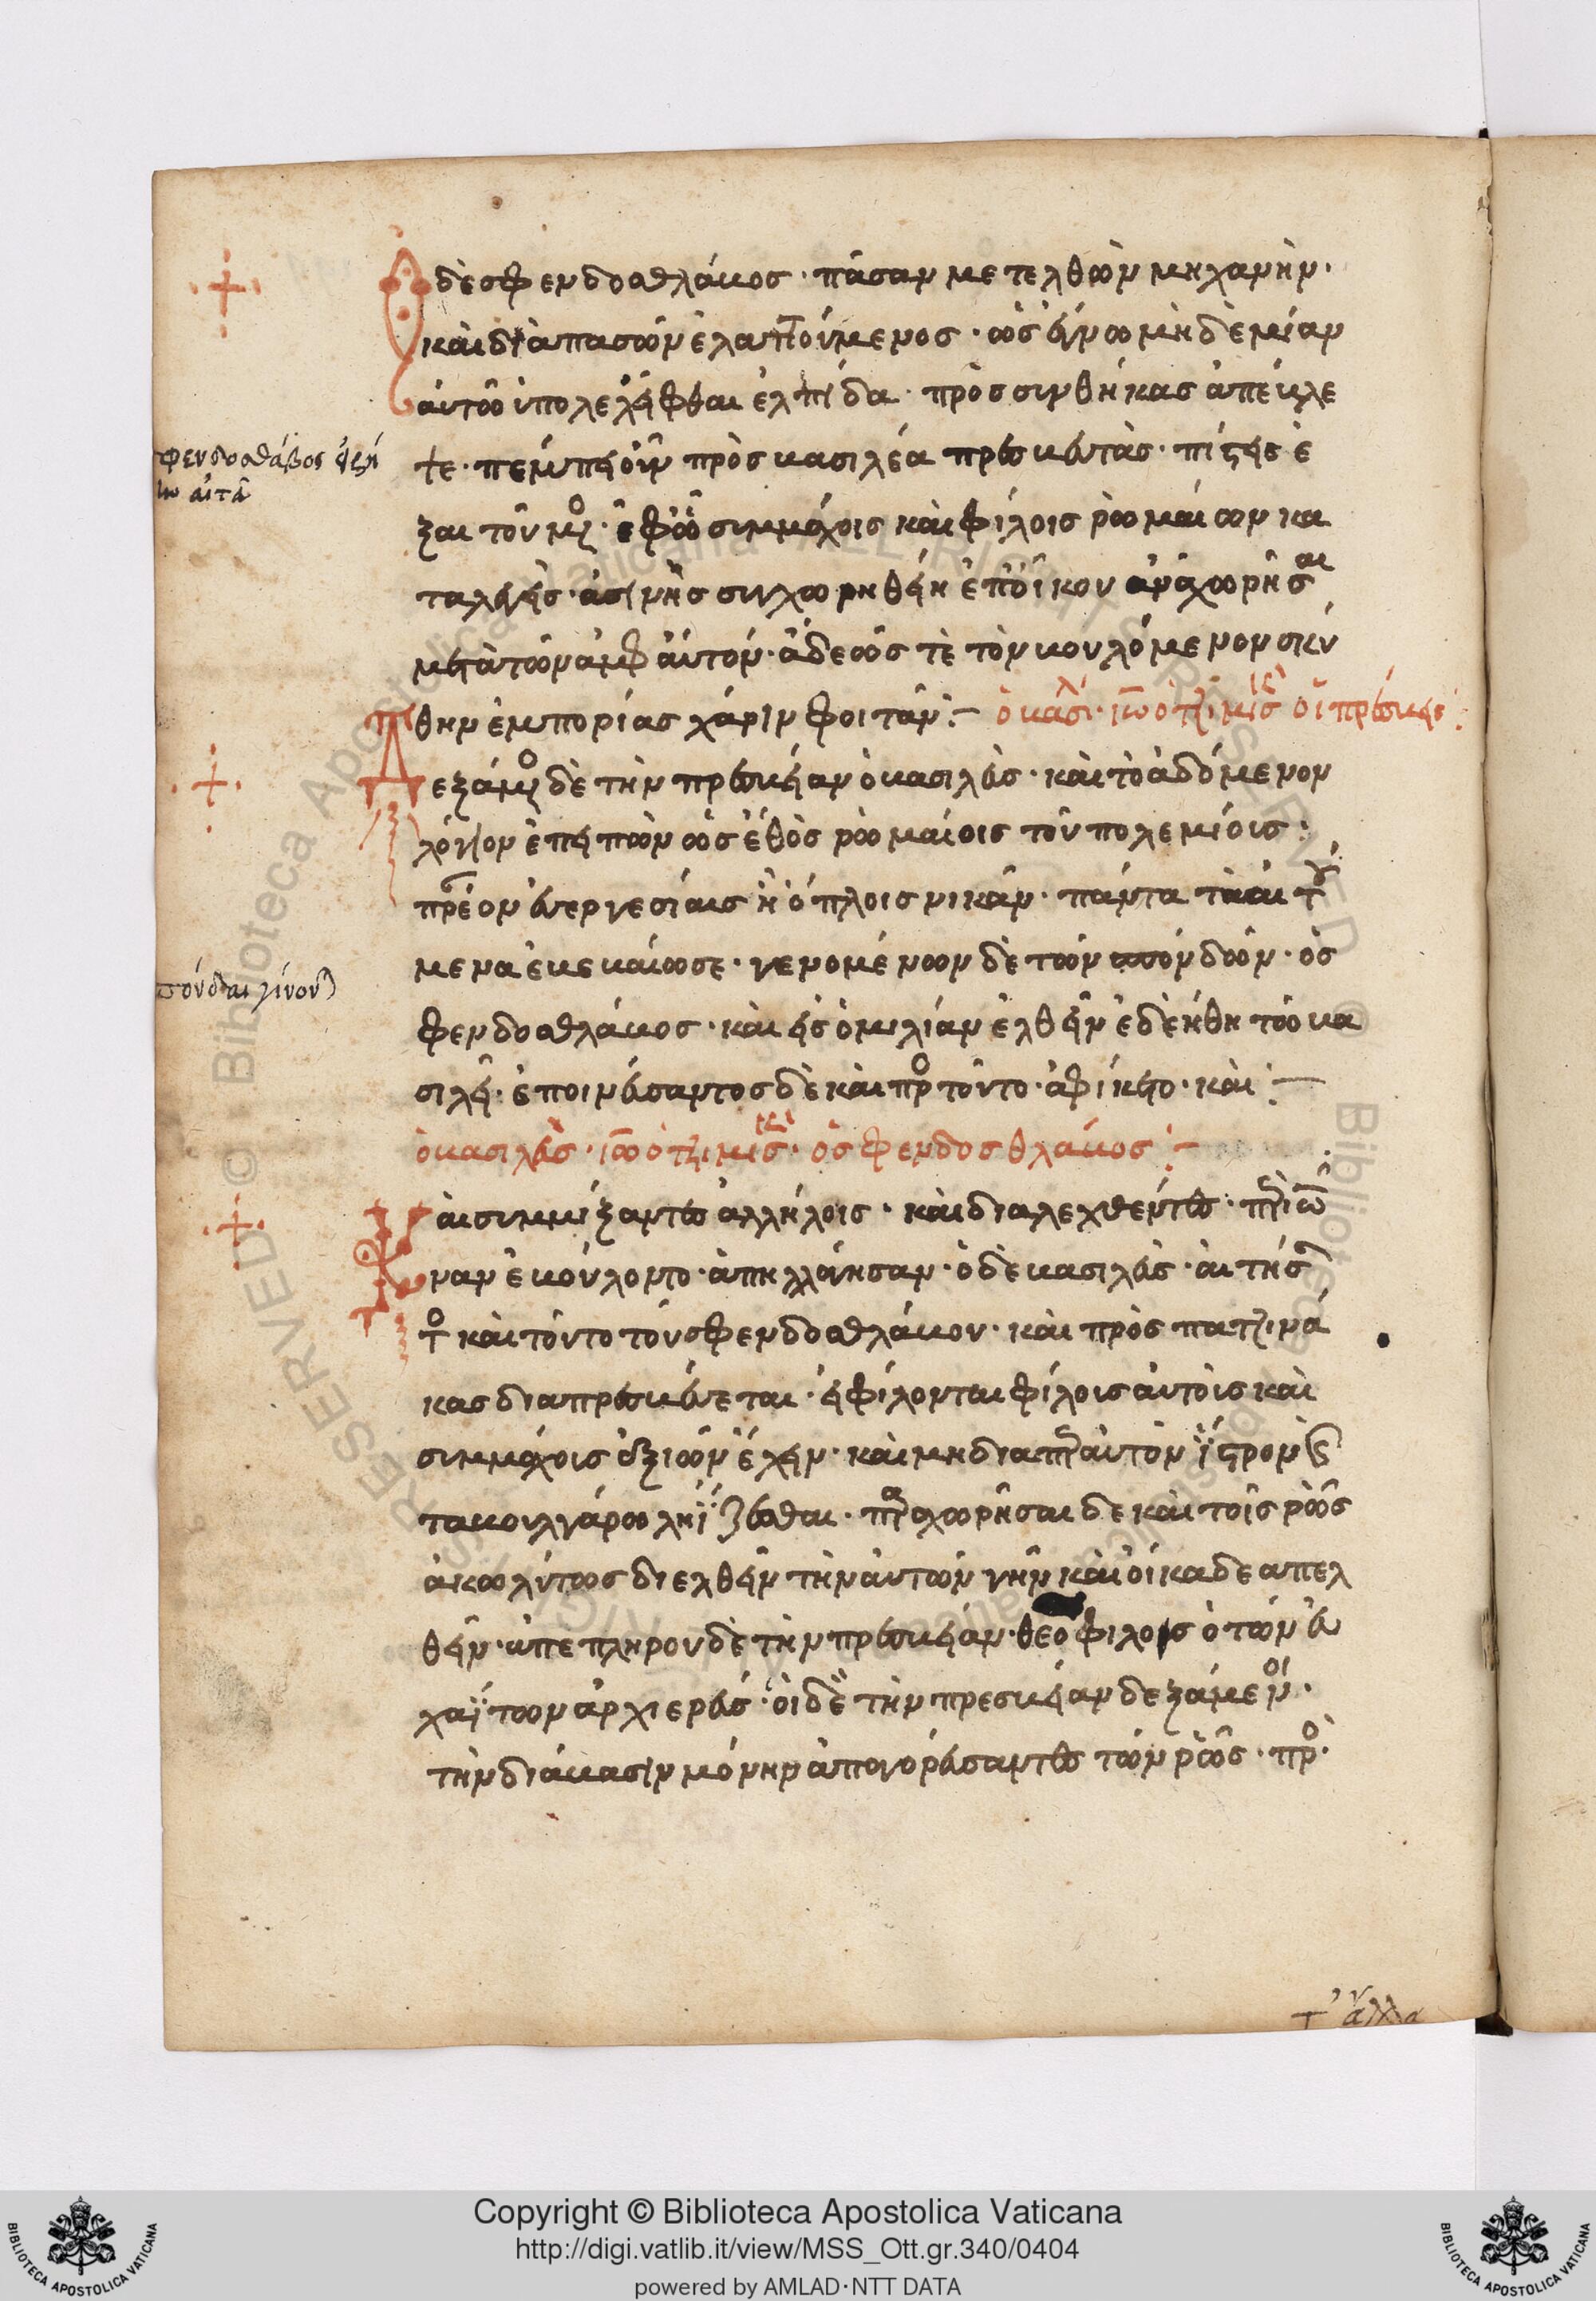 Ὁ δὲ σφενδοσθλάβος· πᾶσαν μετελθὼν μηχανὴν·
καὶ διὰ πασῶν ἐλαττούμενος· ὡς ἔγνω μηδὲ μίαν
αὐτῶ ὑπολελεῖφθαι ἐλπίδα· πρὸς συνθήκας ἀπέκλε
τε· πέμπει οὖν πρὸς βασιλέα πρέσβευτὰς· πίστεις ἐ
ξαι τοῦ μο· ἐφῶ συμμάχοις καὶ φίλοις ῥωμαίων κα
ταλεγεὶς· ἀσινὴς συγχωρηθείη ἐπ' οἴκου ἀναχωρῆσαι
μετὰ τῶν ἀμφ' αὐτόν· ἀδεῶς τὲ τὸν βουλόμενον σκύ
θην ἐμπορίας χάριν φοιτᾶν:– ὁ βασιλ· ἰω ὁ τζιμισκὴς οἱ πρέσβεις:
Δεξάμο δὲ τὴν πρεσβείαν ὁ βασιλεὺς· καὶ τὸ ἀδόμενον
λόγιον ἐπειπὼν ὡς ἔθος ῥωμαίοις τοῦ πολεμίοις:
πρέον εὐεργεσίαις ἢ ὅπλοις νικᾶν· πάντα τὰ αἰτού
μενα ἐβεβαίωσε· γενομένων δὲ τῶν σπονδῶν· ὁ σ
φενδοσθλάβος· καὶ εἰς ὁμιλίαν ἐλθεῖν ἐδεήθη τῶ βα
σιλεῖ· ἐπινεύσαντος δὲ καὶ πρὸ τοῦτο· ἀφίκετο· καὶ:–
ὁ βασιλεὺς· ἰω ὁ τζιμισκὴς· ὁ σφενδοσθλάβος:–
Καὶ συμμίξαντες ἀλλήλοις· καὶ διαλεχθέντες· περὶ ὧ
ναν ἐβούλοντο· ἀπηλλάγησαν· ὁ δὲ βασιλεὺς· αἰτήσ
το καὶ τοῦτο τοῦ σφενδοσθλάβου· καὶ πρὸς πατζινά
κας διαπρεσβεύεται· εἰ φίλονται φίλοις αὐτοῖς καὶ
συμμάχοις ἀξιῶν ἔχειν· καὶ μὴ διαπερ αὐτὸν ἴστρον καὶ
τα βουλγάρω ληΐζεσθαι· παραχωρῆσαι δε καὶ τοῖς ῥῶς
ἀκωλύτως διελθεῖν τὴν αὐτῶν γῆν καὶ οἴκαδε απελ
θεῖν· ἀπεπλήρου δὲ τὴν πρεσβείαν· θεόφιλος ὁ τῶν εὐ
χαΐτων ἀρχιερεὺς· οἱ δὲ τὴν πρεσβείαν δεξάμενοι·
τὴν διάβασιν μόνην ἀπαγορεύσαντες τῶν ῥῶς· πρὸ·
φενδοσθλάβος εἰρή
νην αἰτεῖ
σπόνδαι γίνον
τἄλλα